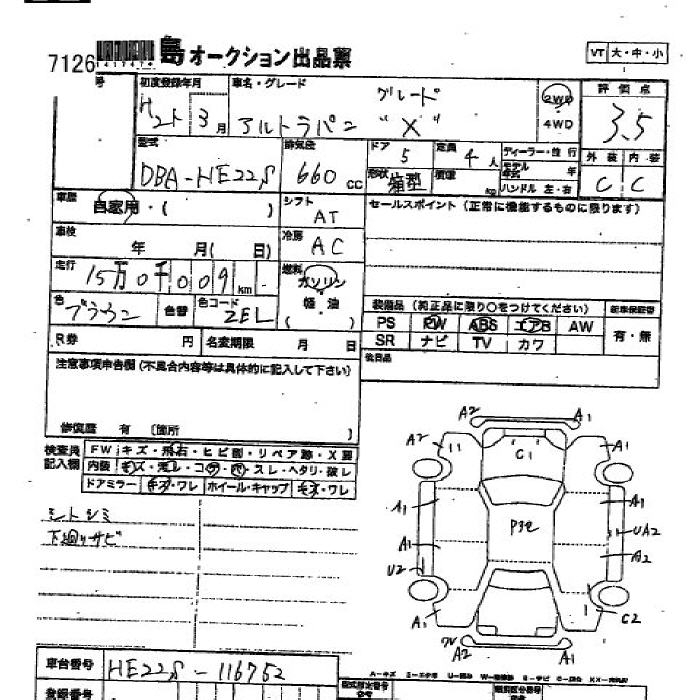 7126 島オークション出品票
VT 大・中・小
号 初度登録年月 車名・グレード グレード 2WD 4WD 評価点
H21 3月 アルトラパン "X" 3.5
型式 DBA-HE22S 排気量 660cc ドア 5 定員 4人 ディーラー・並行 外装 内装
形状 箱型 積庫 kg モデル年式 年 C C
ハンドル 左・右
車歴 自家用・( ) シフト AT セールスポイント(正常に機能するものに限ります)
車検 年 月( 日) 冷房 AC
走行 15万0千009km 燃料 ガソリン
軽油
( )
色 ブラウン 色替 色コード ZEL
装備品(純正品に限り○をつけてください) 新車保証書
PS PW ABS エアB AW 有・無
SR ナビ TV カワ
R券 円 名変期限 月 日
後日品
注意事項申告欄(不具合内容等は具体的に記入して下さい)
修復歴 有 〔箇所 〕
検査員記入欄 FW キズ・飛石・ヒビ割・リペア跡・X要
内装 キズ・汚レ・コゲ・穴・スレ・ヘタリ・破レ
ドアミラー キズ・ワレ ホイール・キャップ キズ・ワレ
シトシミ
下廻りサビ
A2 A1
A2 C1 A1
A1 A1
P3e UA2
A1 A2
U2
A1 C2
A2 A1
車台番号 HE22S-116752
登録番号